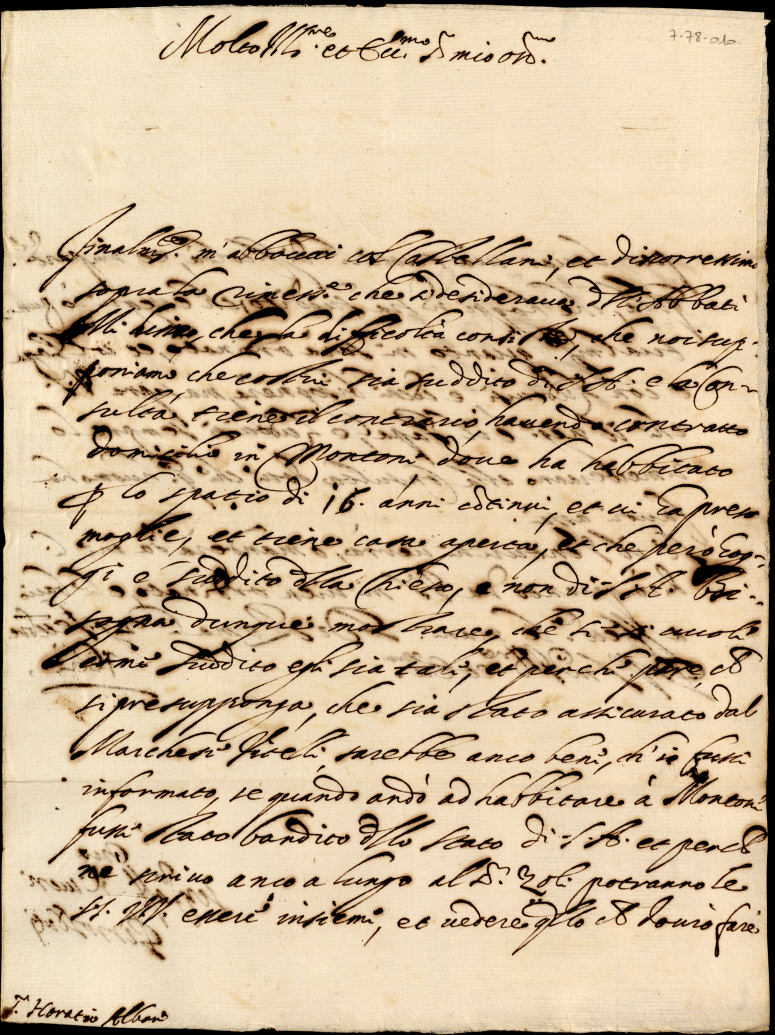 7-78-010
Molto Ill.re et Ecc.mo S.r mio oss.mo
Finalm.te m'abboccai col Castellani, et discorressimo
sopra la rimess.e che si desiderava d'Abbati
Mi disse, che la difficoltà consiste, che noi sup-
poniamo che costui sia suddito di S.A. e la Con-
sulta, tiene il contrario, havendo contratto
domicilio in Montone dove ha habbitato
p lo spatio di 16. anni côtinui, et vi ha preso
moglie, et tiene casa aperta, et che però hog-
gi è suddito dlla Chiesa, e non di S.A. Bi-
sogna dunque mostrare, che se si vuole
come suddito egli sia tale, et perche pare, ch
si presupponga, che sia stato assicurato dal
Marchese Viteli, sarebbe anco bene, ch'io fussi
informato, se quando andò ad habbitare à Montone
fusse stato bandito dllo stato di S.A. et perch
ne scrivo anco a lungo al S.r Zoli potranno le
SS. VV. essere insieme, et vedere qllo ch dovrò fare
S.r Horatio Albani